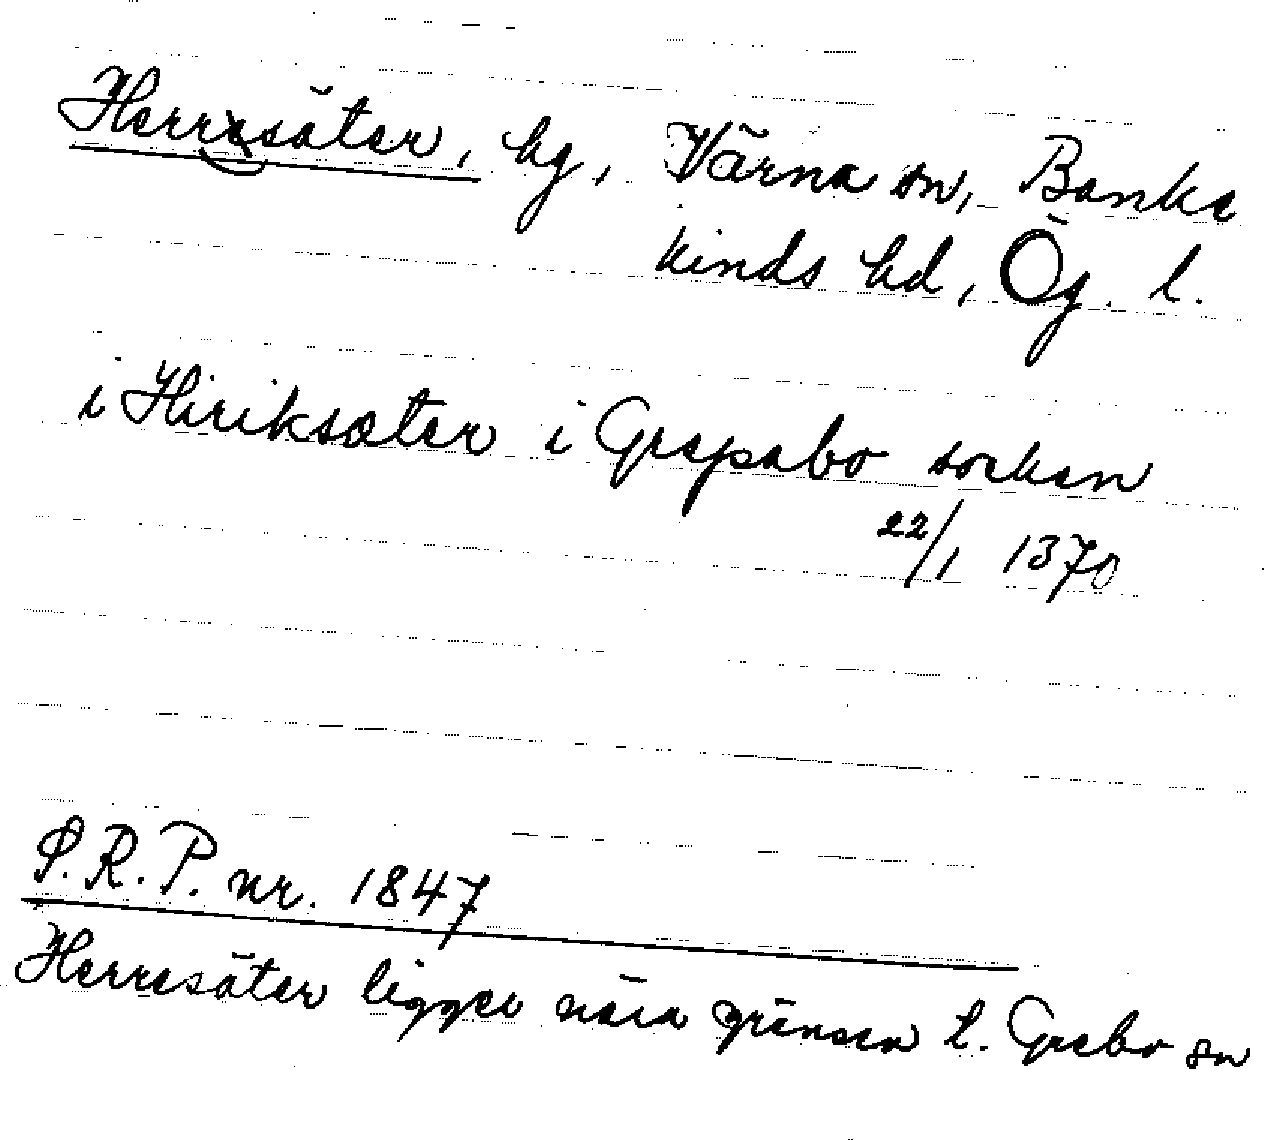 Herrsäter, by, Värna sn, Banke
kinds hd, Ög. l.
i Hiriksæter i Grepabo sockan
22/1 1370
S.R.P. nr. 1847
Herresäter ligger nära gränsen t. Grebo sn